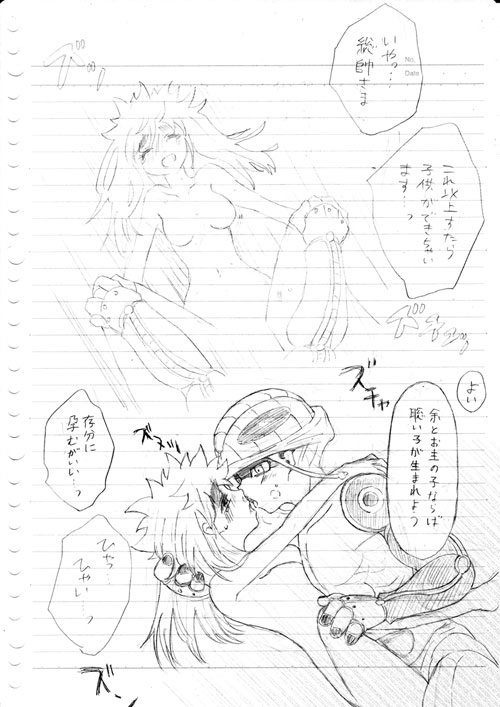 いやっ…
総帥さま
No.
Date
これ以上すたら
子供ができちゃい
ます…っ
ズズッ
ズチュズッ
よい
余とお主の子ならば
聡い子が生まれようっ
ズチャ
存分に
孕むがいい…っ
ズヌッ
ひぁ
ひゃい…っ
ズン